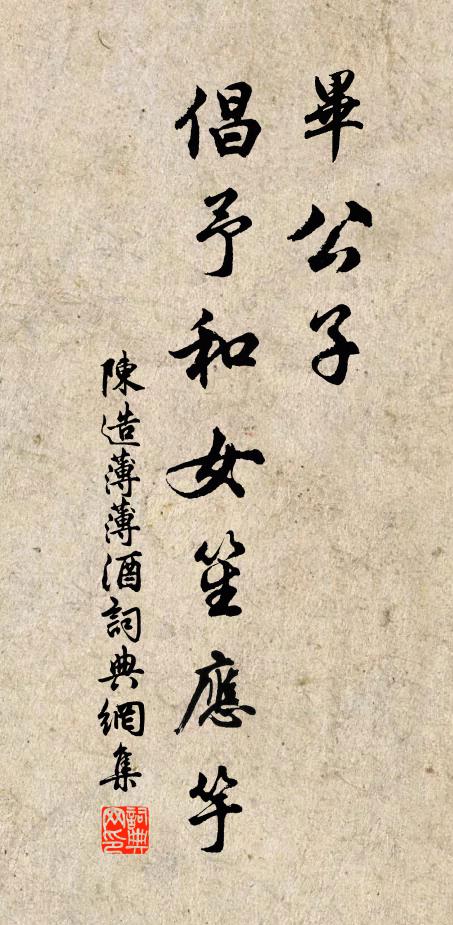 畢公子
倡予和女笙應竽
陳造薄薄酒詞典網集
詞典网印